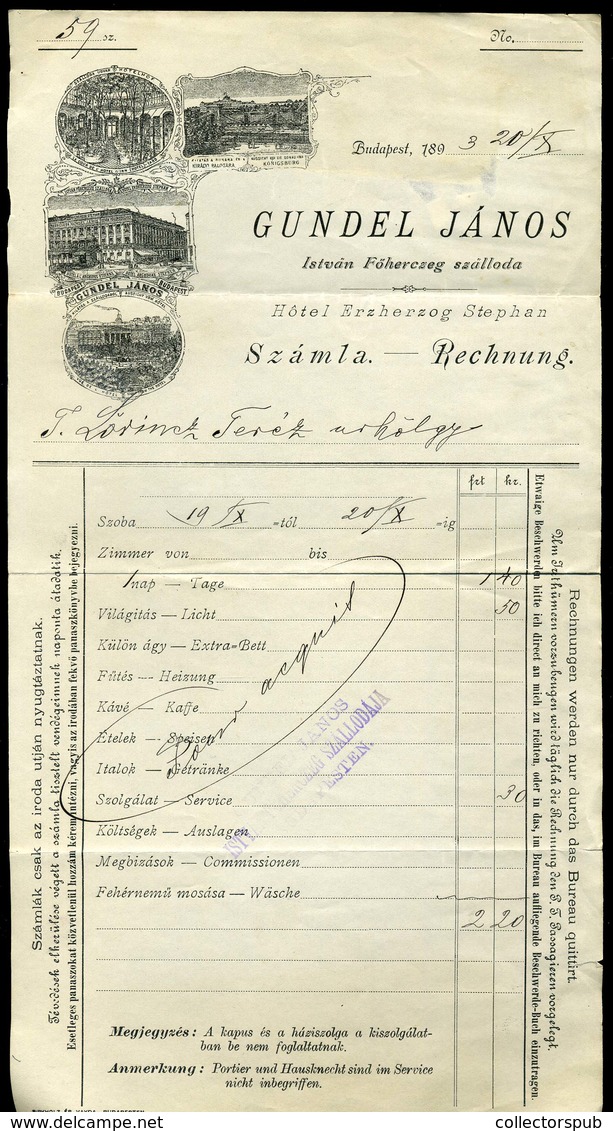 59 sz.
No.
Budapest, 1893 20/IX
KIRÁLYI PALOTÁRA
KÖNIGSBURG
BUDAPEST
BUDAPEST
GUNDEL JÁNOS
GUNDEL JÁNOS
István Főherczeg szálloda
Hôtel Erzherzog Stephan
Számla. — Rechnung.
T. Lörincz Teréz urhölgy
frt kr.
Szoba 19/IX =tól 20/IX =ig
Zimmer von bis
1 nap — Tage 1 40
Világitás — Licht 50
Külön ágy — Extra=Bett
Fűtés — Heizung
Kávé — Kaffe
Ételek — Speisen
Italok — Getränke
Szolgálat — Service 30
Költségek — Auslagen
Megbizások — Commissionen
Fehérnemű mosása — Wäsche
2 20
Pour acquit
JÁNOS
SZÁLLODÁJA
ESTEN
Megjegyzés: A kapus és a háziszolga a kiszolgálat-
ban be nem foglaltatnak.
Anmerkung: Portier und Hausknecht sind im Service
nicht inbegriffen.
Számlák csak az iroda utján nyugtáztatnak.
Tévedések elkerülése végett a számla tisztelt vendégeimnek naponta átadatik.
Esetleges panaszokat közvetlenül hozzám kérem intézni, vagy is az irodában fekvő panaszkönyvbe bejegyezni.
Etwaige Beschwerden bitte ich direct an mich zu richten, oder in das, im Bureau aufliegende Beschwerde-Buch einzutragen.
Um Irrthümern vorzubeugen wird täglich die Rechnung den P. T. Passagieren vorgelegt.
Rechnungen werden nur durch das Bureau quittirt.
collectorspub